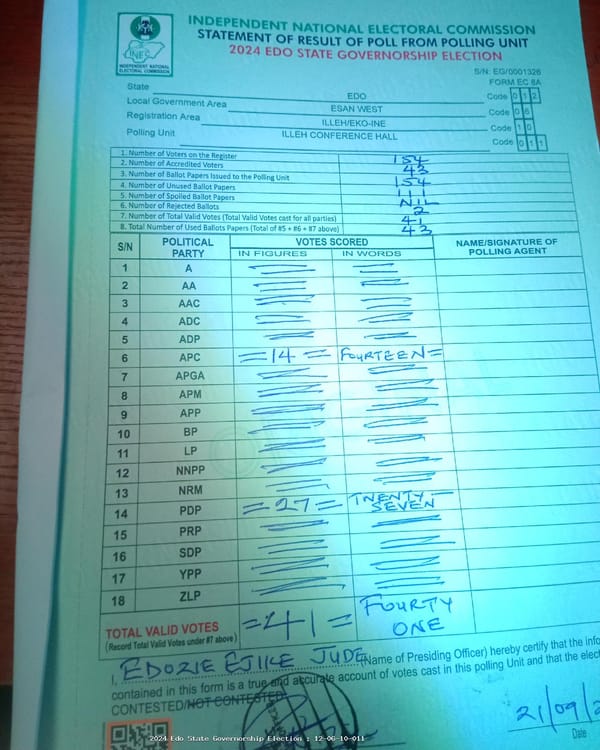 INDEPENDENT NATIONAL ELECTORAL COMMISSION
STATEMENT OF RESULT OF POLL FROM POLLING UNIT
2024 EDO STATE GOVERNORSHIP ELECTION
INEC
INDEPENDENT NATIONAL
ELECTORAL COMMISSION
S/N: EG/0001326
FORM EC 8A
State EDO Code 0 1 2
Local Government Area ESAN WEST Code 0 6
Registration Area ILLEH/EKO-INE Code 1 0
Polling Unit ILLEH CONFERENCE HALL Code 0 1 1
1. Number of Voters on the Register 154
2. Number of Accredited Voters 43
3. Number of Ballot Papers Issued to the Polling Unit 154
4. Number of Unused Ballot Papers 111
5. Number of Spoiled Ballot Papers NIL
6. Number of Rejected Ballots 2
7. Number of Total Valid Votes (Total Valid Votes cast for all parties) 41
8. Total Number of Used Ballots Papers (Total of #5 + #6 + #7 above) 43
S/N POLITICAL PARTY VOTES SCORED NAME/SIGNATURE OF POLLING AGENT
IN FIGURES IN WORDS
1 A
2 AA
3 AAC
4 ADC
5 ADP
6 APC =14= FOURTEEN=
7 APGA
8 APM
9 APP
10 BP
11 LP
12 NNPP
13 NRM
14 PDP =27= TWENTY-SEVEN
15 PRP
16 SDP
17 YPP
18 ZLP
TOTAL VALID VOTES =41= FOURTY ONE
(Record Total Valid Votes under #7 above)
I, EDOZIE EJIKE JUDE (Name of Presiding Officer) hereby certify that the info
contained in this form is a true and accurate account of votes cast in this polling Unit and that the elect
CONTESTED/NOT CONTESTED
21/09/2
Date
2024 Edo State Governorship Election : 12-06-10-011